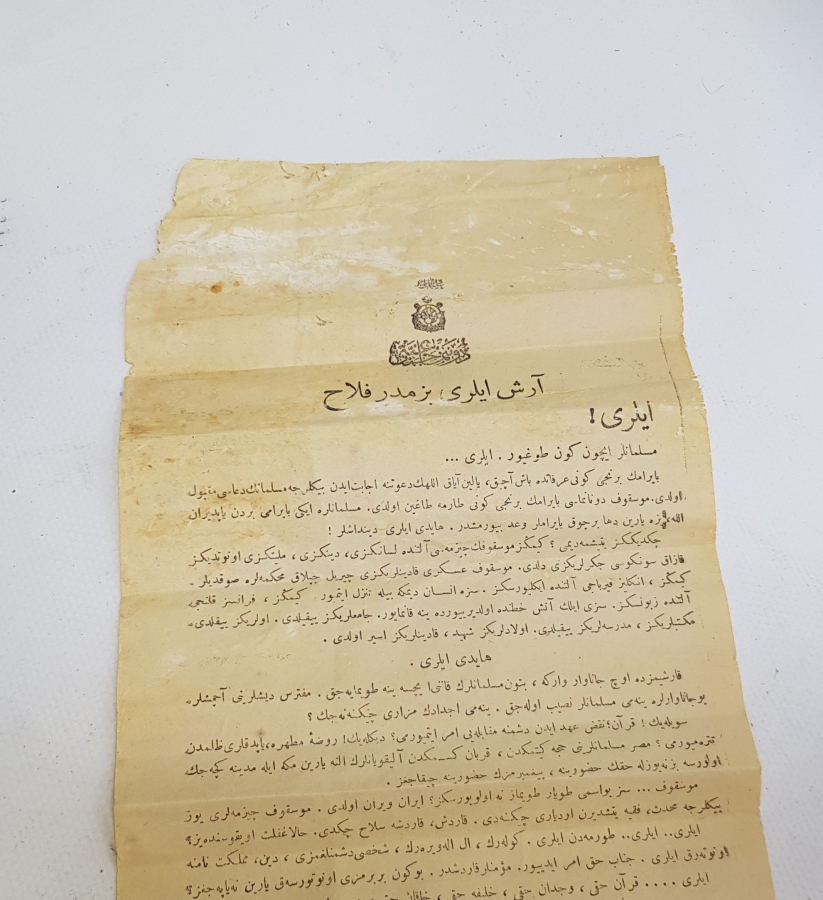 آرش ايلری، بزمدر فلاح
ايلری!
مسلمانلر ايچون كون طوغيور. ايلری ...
بايرامك برنجی كونی عرفاتده باش آچيق، يالين آياق اللهك دعوتنه اجابت ايدن بيكلرجه مسلمانك دعاسی مقبول
اولدی. موسقوف دونانماسی بايرامك برنجی كونی طارمه طاغين اولدی. مسلمانلره ايكی بايرامی بردن ياپديران
الله، بزه يارين دها برچوق بايراملر وعد بيورمشدر. هايدی ايلری دينداشلر!
چكديككز يتيشمه‌ديمی؟ كيمكز موسقوفك چزمه‌سی آلتنده لسانكزی، دينكزی، مليتكزی اونوتديكز
قازاق سونكوسی جكرلريكزی دلدی. موسقوف عسكری قادينلريكزی چيريل چيپلاق محكمه‌لره صوقديلر.
كيمكز، انكليز قيرباجی آلتنده ايكليورسكز. سزه انسان ديمكه بيله تنزل ايتميور كيمكز، فرانسز قلنجی
آلتنده زبونسكز. سزی ايلك آتش خطنده اولديريیورده ينه قانمايور. جامعلريكز ييقيلدی. اولريكز ييقلدی.
مكتبلريكز، مدرسه‌لريكز ييقيلدی. اولادلريكز شهيد، قادينلريكز اسير اولدی.
هايدی ايلری.
قارشيمزده اوچ جاناوار واركه، بتون مسلمانلرك قاننی ايچسه ينه طويمايه‌جق. مفترس ديشلرينی آچمشلر.
بوجاناوارلره ينه‌می مسلمانلر نصيب اوله‌جق. ينه‌می اجدادك مزاری چيكنه‌نه‌جك؟
سويله‌يك! قرآن؛ نقض عهد ايدن دشمنه مقابله‌يی امر ايتميورمی؟ ديكله‌يك! روضهٔ مطهره، ياپدقلری ظلمدن
تتره‌ميورمی؟ مصر مسلمانلرينی حجه كيتمكدن، قربان كسمكدن آليقويانلرك النه يارين مكه ايله مدينه كچه‌جك
اولورسه بز نه‌يوزله حقك حضورينه، پيغمبرمزك حضورينه چيقاجغز.
موسقوف ... سنز بواسمی طويار طويماز نه اولويورسكز؟ ايران ويران اولدی. موسقوف چيزمه‌لری يوز
بيكلرجه محدث، فقيه يتشديرن اودياری چيكنه‌دی. قارداش، قارداشه سلاح چكدی. حالا غفلت اويقوسنده‌ميز؟
ايلری.. ايلری.. طورمه‌دن ايلری. كوله‌رك، ال اله‌ويره‌رك، شخصی دشمنلغمزی، دين، مملكت نامنه
اونوته‌رق ايلری. جناب حق امر ايدييور. مؤمنلر قارداشدر. بوكون بربرمزی اونوتورسه‌ق يارين نه‌ياپه‌جغز؟
ايلری .... قرآن حقی، وجدان حقی، خليفه حقی، خاقان حقی